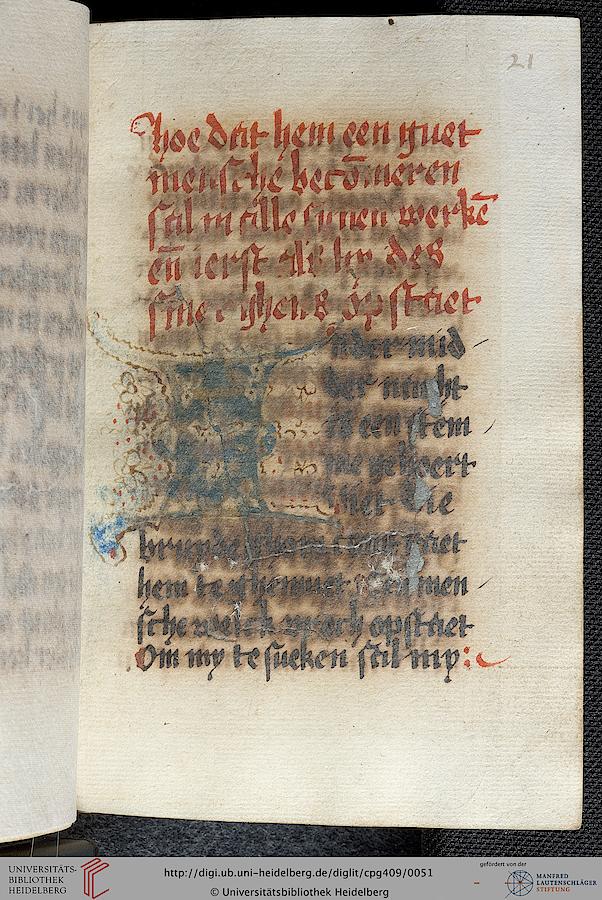 21
hoe dat hem een guet
mensche becōmeren
sal in alle sinen werkē
eñ ierst als hy des
smorghens opstaet
nder mid
der nacht
is een stem
me gehoert
siet die
brundeghom
hem te ghemuet men
sche opstaet
Om my te sueken sal my
UNIVERSITÄTS-
BIBLIOTHEK
HEIDELBERG
http://digi.ub.uni-heidelberg.de/diglit/cpg409/0051
© Universitätsbibliothek Heidelberg
gefördert von der
MANFRED
LAUTENSCHLÄGER
STIFTUNG